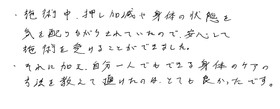 ・施術中、押し加減や身体の状態を
気を配りながらされていたので、安心して
施術を受けることができました。
・それに加え、自分一人でもできる身体のケアの
方法を教えて頂けたのは、とても良かったです。